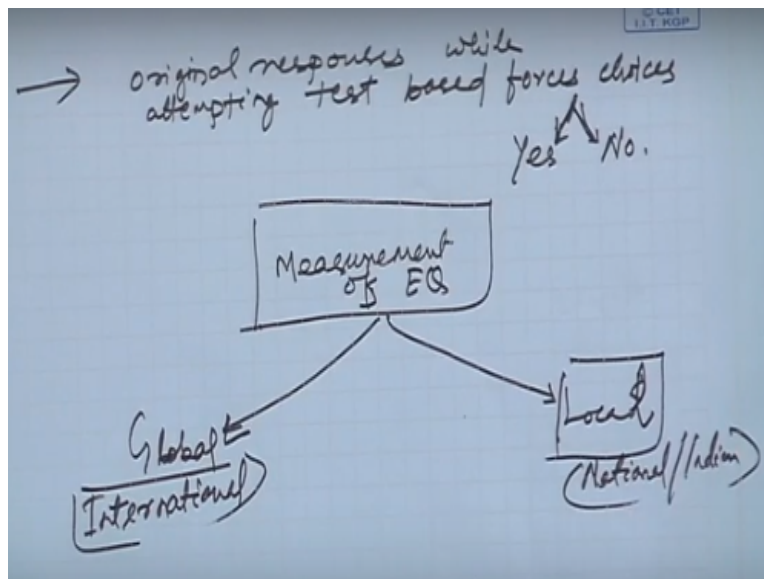 © CET
I.I.T. KGP
→ original responses while
attempting test based forces choices
Yes No.
Measurement
of EQ
Global
International)
Local
(National/Indian)